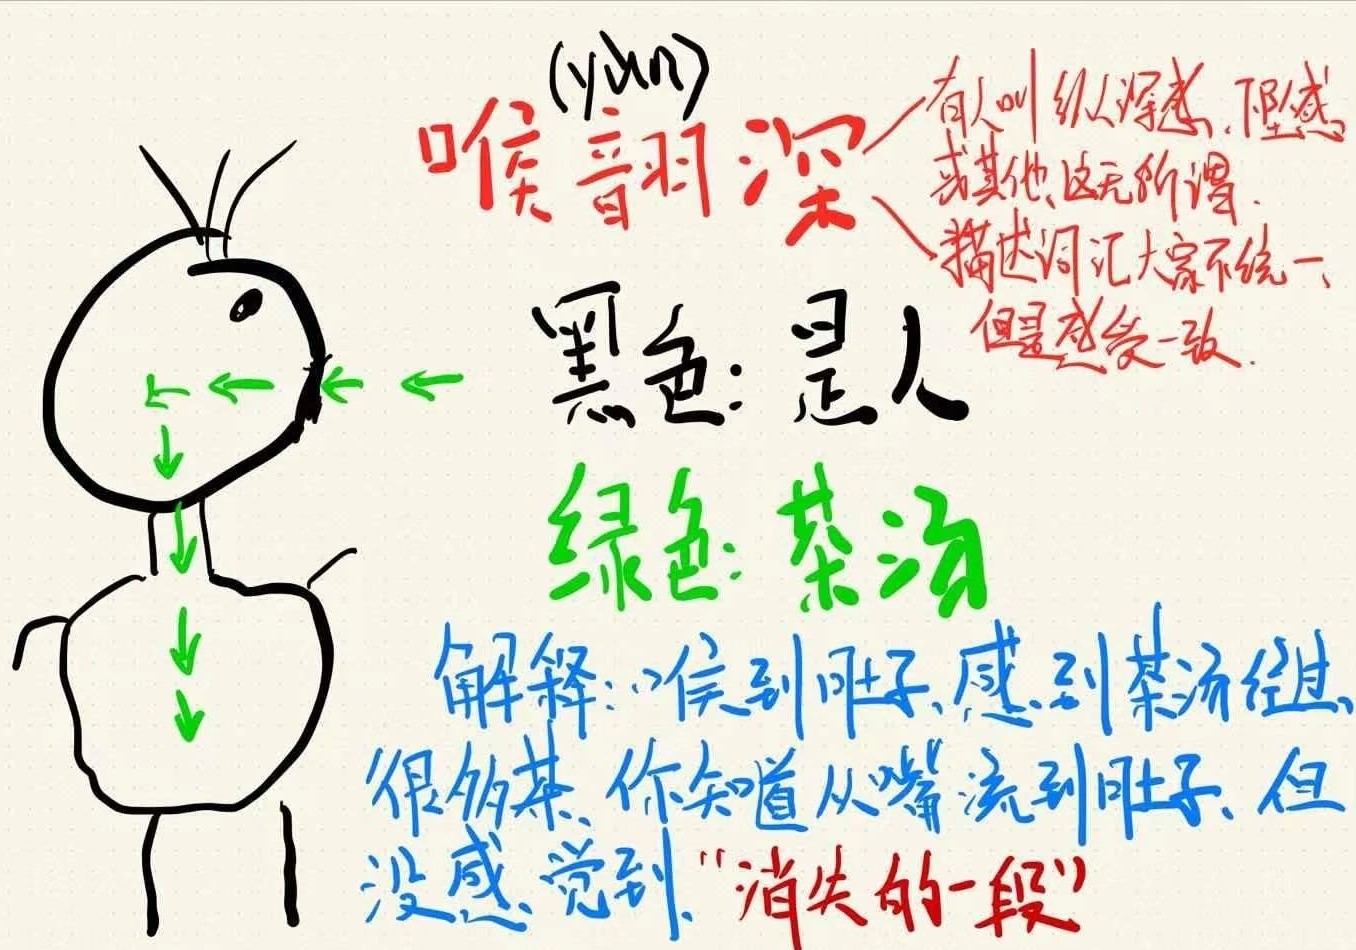 (yùn)
喉韵深
有人叫纵深感、下坠感
或其他、这无所谓.
描述词汇大家不统一、
但是感受一致.
黑色:是人
绿色:茶汤
解释:喉到肚子、感到茶汤经过、
很多茶、你知道从嘴流到肚子、但
没感觉到“消失的一段”